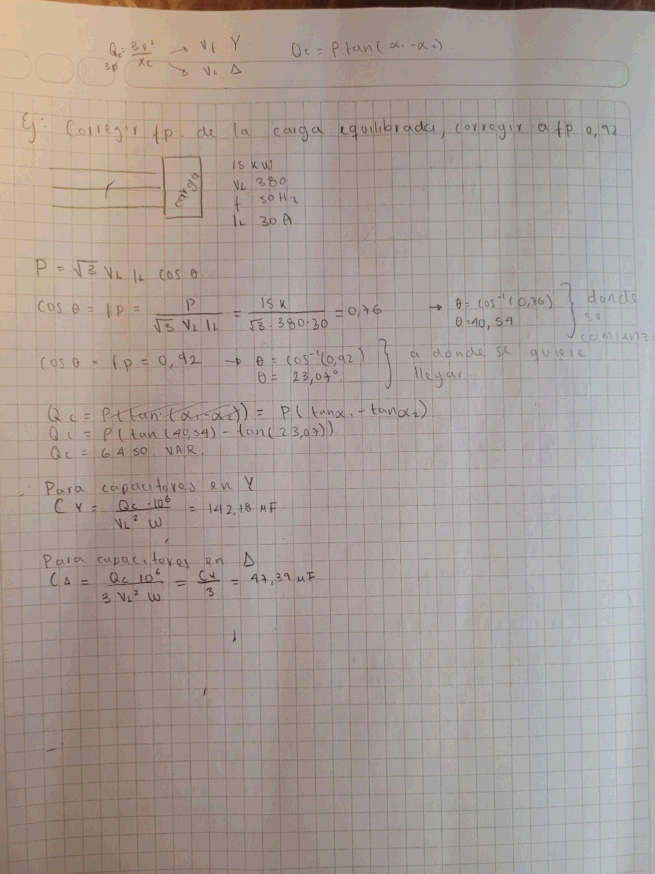 Qc = 3V² / Xc → Vf Y    Qc = P tan(α1 - α2)
3φ → VL Δ
Ej: Corregir fp. de la carga equilibrada, corregir a fp 0,92
carga 15 kW
VL 380
f 50Hz
IL 30A
P = √3 VL IL cos θ
cos θ = fp = P / √3 VL IL = 15K / √3 · 380 · 30 = 0,76 → θ = cos⁻¹(0,76) } donde se comienza
θ = 40,54
cos θ = fp = 0,92 → θ = cos⁻¹(0,92) } a donde se quiere llegar
θ = 23,07°
Qc = P(tan (α1-α2)) = P(tanα1 - tanα2)
Qc = P(tan (40,54) - tan(23,07))
Qc = 6450 VAR.
Para capacitores en Y
CY = Qc · 10⁶ / VL² W = 142,18 μF
Para capacitores en Δ
CΔ = Qc 10⁶ / 3 VL² W = CY / 3 = 47,39 μF